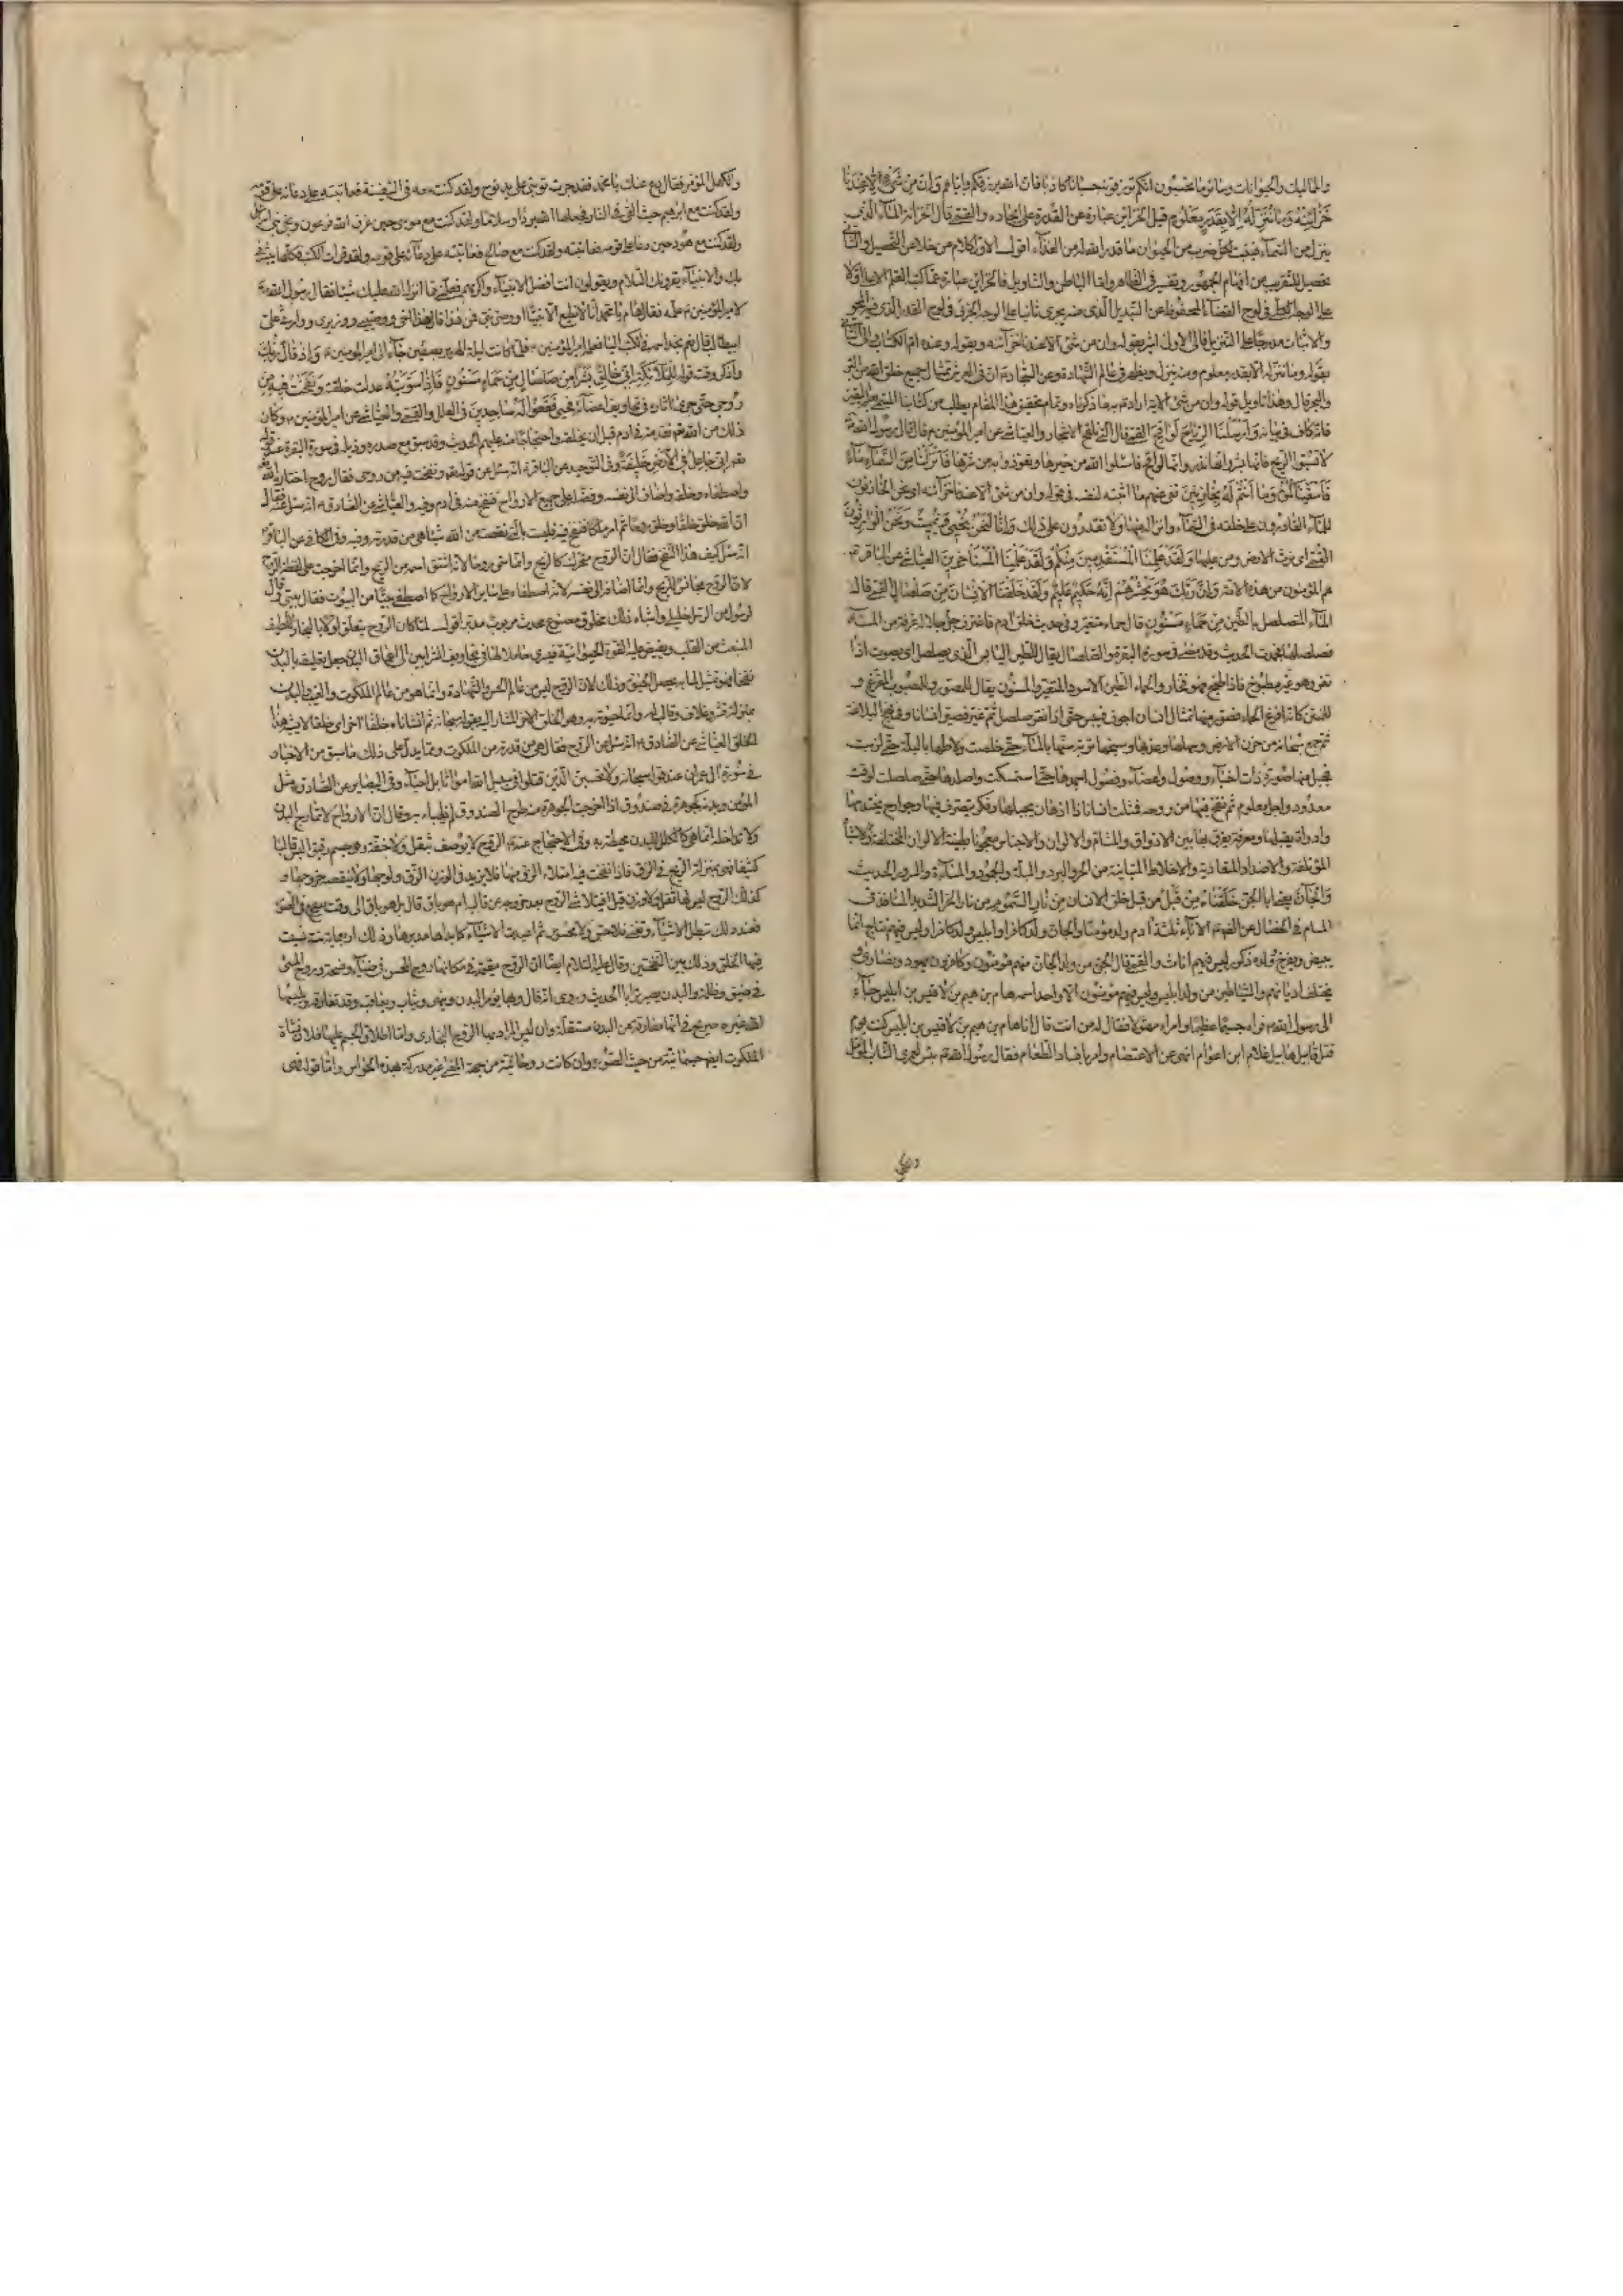 والمماليك والحيوانات وسائر ما تحسبون انكم ترزقونه حسبانا كاذبا فان الله يرزقكم واياهم وَاِنْ مِنْ شَيْءٍ اِلَّا عِنْدَنَا
خَزَائِنُهُ وَمَا نُنَزِّلُهُ اِلَّا بِقَدَرٍ مَعْلُومٍ قيل الخزاين عبارة عن القدرة على ايجاده والقمي قال الخزانة الماء الذي
ينزل من السماء فينبت لكل ضرب من الحيوان ما قدر الله له من الغذاء اقول الاول كلام من خلا عن التحصيل والثاني
تمثيل للتقريب من افهام الجمهور وتفسير في الظاهر واما الباطن والتاويل فالخزاين عبارة عما كتبه القلم الاعلى اولا
على الوجه الكلي في لوح القضاء المحفوظ عن التبديل الذي منه يجري ثانيا على الوجه الجزئي في لوح القدر الذي فيه المحو
والاثبات مدرجا على التنزيل فالى الاول اشير بقوله وان من شئ الا عندنا خزائنه وبقوله وعنده ام الكتاب والى الثاني
بقوله وما ننزله الا بقدر معلوم ومنه ينزل ويظهر في عالم الشهادة وعن السجادم ان في العرش تمثال جميع ما خلق الله من البر
والبحر قال وهذا تاويل قوله وان من شئ الاية اراد به ما ذكرناه وتمام تحقيق هذا المقام يطلب من كتابنا المسمى بعلم اليقين
فانه كاف في بيانه وَاَرْسَلْنَا الرِّيَاحَ لَوَاقِحَ القمي قال التي تلقح الاشجار والعياشي عن امير المؤمنين م قال قال رسول الله
لا تسبوا الريح فانها بشر وانها نذر وانها لواقح فاسئلوا الله من خيرها وتعوذوا به من شرها فَاَنْزَلْنَا مِنَ السَّمَاءِ مَاءً
فَاَسْقَيْنَاكُمُوهُ وَمَا اَنْتُمْ لَهُ بِخَازِنِينَ نفى عنهم ما اثبته لنفسه في قوله وان من شئ الا عندنا خزائنه اي نحن الخازنون
للماء القادرون على خلقه في السماء وانزاله منها ولا تقدرون على ذلك وَاِنَّا لَنَحْنُ نُحْيِي وَنُمِيتُ وَنَحْنُ الْوَارِثُونَ
القمي اي نرث الارض ومن عليها وَلَقَدْ عَلِمْنَا الْمُسْتَقْدِمِينَ مِنْكُمْ وَلَقَدْ عَلِمْنَا الْمُسْتَأْخِرِينَ العياشي عن الباقر م
هم المؤمنون من هذه الامة وَاِنَّ رَبَّكَ هُوَ يَحْشُرُهُمْ اِنَّهُ حَكِيمٌ عَلِيمٌ وَلَقَدْ خَلَقْنَا الْاِنْسَانَ مِنْ صَلْصَالٍ القمي قال
الماء المتصلصل بالطين مِنْ حَمَاءٍ مَسْنُونٍ قال حماء متغير وفي حديث خلق ادم فاغترف جل جلاله غرفة من الماء
فصلصلها فجمدت الحديث وقد مضى في سورة البقرة والصلصال يقال للطين اليابس الذي يصلصل اي يصوت اذا
نقر وهو غير مطبوخ فاذا طبخ فهو فخار والحماء الطين الاسود المتغير والمسنون يقال للمصور وللمصبوب المفرغ و
للمنتن كانه افرغ الحماء فصور منها تمثال انسان اجوف فيبس حتى اذا نقر صلصل ثم غير فصير انسانا وفي نهج البلاغة
ثم جمع سبحانه من حزن الارض وسهلها وعذبها وسبخها تربة سنها بالماء حتى خلصت ولاطها بالبلة حتى لزبت
فجبل منها صورة ذات احناء ووصول واعضاء وفصول اجمدها حتى استمسكت واصلدها حتى صلصلت لوقت
معدود واجل معلوم ثم نفخ فيها من روحه فمثلت انسانا ذا اذهان يجيلها وفكر يتصرف فيها وجوارح يختدمها
وادوات يقلبها ومعرفة يفرق بها بين الاذواق والمشام والالوان والاجناس معجونا بطينة الالوان المختلفة والاشباه
المؤتلفة والاضداد المتعادية والاخلاط المتباينة من الحر والبرد والبلة والجمود والمساءة والسرور الحديث
وَالْجَانَّ خَلَقْنَاهُ مِنْ قَبْلُ من قبل خلق الانسان مِنْ نَارِ السَّمُومِ من نار الحر الشديد النافذ في
المسام في الخصال عن الصادق م الاباء ثلثة ادم ولد مؤمنا والجان ولد كافرا وابليس ولد كافرا وليس فيهم نتاج انما
يبيض ويفرخ وولده ذكور ليس فيهم اناث والقمي قال الجن من ولد الجان منهم مؤمنون وكافرون ويهود ونصارى و
يختلف اديانهم والشياطين من ولد ابليس وليس فيهم مؤمنون الا واحد اسمه هام بن هيم بن لاقيس بن ابليس جاء
الى رسول الله فراه جسيما عظيما وامرء مهولا فقال له من انت قال انا هام بن هيم بن لاقيس بن ابليس كنت يوم
قتل قابيل هابيل غلام ابن اعوام انهى عن الاعتصام وامر بافساد الطعام فقال رسول الله بئس لعمري الشاب المؤمل
والكهل المؤمر فقال دع عنك يا محمد فقد جرت توبتي على يد نوح ولقد كنت معه في السفينة فعاتبته على دعائه على قومه
ولقد كنت مع ابرهيم حيث القي في النار فجعلها الله بردا وسلاما ولقد كنت مع موسى حين غرق الله فرعون ونجى بني اسرائيل
ولقد كنت مع هود حين دعا على قومه فعاتبته ولقد كنت مع صالح فعاتبته على دعائه على قومه ولقد قرات الكتب فكلها تبشرني
بك والانبياء يقرؤنك السلام ويقولون انت افضل الانبياء واكرمهم فعلمني مما انزل الله عليك شيئا فقال رسول الله
لامير المؤمنين م علمه فقال هام يا محمد انا لا نطيع الا نبيا او وصي نبي فمن هذا قال هذا اخي ووصيي ووزيري ووارثي علي
ابيطالب قال نعم نجد اسمه في الكتب اليا فعلمه امير المؤمنين م فلما كانت ليلة الهرير بصفين جاء الى امير المؤمنين م وَاِذْ قَالَ رَبُّكَ
واذكر وقت قوله لِلْمَلَائِكَةِ اِنِّي خَالِقٌ بَشَرًا مِنْ صَلْصَالٍ مِنْ حَمَاءٍ مَسْنُونٍ فَاِذَا سَوَّيْتُهُ عدلت خلقته وَنَفَخْتُ فِيهِ مِنْ
رُوحِي حتى جرى اثاره في تجاويف اعضائه فحيي فَقَعُوا لَهُ سَاجِدِينَ في العلل والقمي والعياشي عن امير المؤمنين م وكان
ذلك من الله تقدمة في ادم قبل ان يخلقه واحتجاجا منه عليهم الحديث وقد سبق مع صدره وذيله في سورة البقرة عند قوله
اني جاعل في الارض خليفة وفي التوحيد عن الباقر م انه سئل عن قوله ونفخت فيه من روحي فقال روح اختاره الله
واصطفاه وخلقه واضافه الى نفسه وفضله على جميع الارواح فنفخ منه في ادم وفيه والعياشي عن الصادق م انه سئل عنه فقال
ان الله خلق خلقا وخلق روحا ثم امر ملكا فنفخ فيه فليست بالتي نقصت من الله شيئا هي من قدرته وفيه وفي الكافي عن الباقر
انه سئل كيف هذا النفخ فقال ان الروح متحرك كالريح وانما سمي روحا لانه اشتق اسمه من الريح وانما اخرجت على لفظ الريح
لان الروح مجانس للريح وانما اضافه الى نفسه لانه اصطفاه على ساير الارواح كما اصطفى بيتا من البيوت فقال بيتي وقال
لرسول من الرسل خليلي واشباه ذلك مخلوق مصنوع محدث مربوب مدبر اقول لما كان الروح يتعلق اولا بالبخار اللطيف
المنبعث من القلب ويفيض عليه القوة الحيوانية فيسري حاملا لها في تجاويف الشرايين الى اعماق البدن جعل تعليقه بالبدن
نفخا فهو تمثيل لما به يحصل الحيوة وذلك لان الروح ليس من عالم الحس والشهادة وانما هو من عالم الملكوت والغيب والبدن
بمنزلة قشر وغلاف وقالب له وانما حيوته به وهو الخلق الاخر المشار اليه بقوله سبحانه ثم انشاناه خلقا اخر اي خلقا لا يشبه هذا
الخلق العياشي عن الصادق م انه سئل عن الروح فقال هي من قدرته من الملكوت ومما يدل على ذلك ما سبق من الاخبار
في سورة ال عمران عند قوله سبحانه ولا تحسبن الذين قتلوا في سبيل الله امواتا بل احياء وفي البصاير عن الصادق م مثل
المؤمن وبدنه كجوهرة في صندوق اذا اخرجت الجوهرة منه طرح الصندوق ولم يعبأ به وقال ان الارواح لا تمازج البدن
ولا تداخله انما هي كالكلل للبدن محيطة به وفي الاحتجاج عنه م الروح لا يوصف بثقل ولا خفة وهو جسم رقيق البس قالبا
كثيفا فهي بمنزلة الريح في الزق فاذا نفخت فيه امتلاء الزق منها فلا يزيد في الوزن الزق ولوجها ولا ينقصه خروجها و
كذلك الروح ليس لها ثقل ولا وزن قيل افيتلاشى الروح بعد خروجه عن قالبه ام هو باق قال بل هو باق الى وقت ينفخ في الصور
فعند ذلك تبطل الاشياء وتفنى فلا حس ولا محسوس ثم اعيدت الاشياء كما بداها مدبرها وذلك اربعمائة سنة تسبت
فيها الخلق وذلك بين النفختين وقال عليه السلام ايضا ان الروح مقيمة في مكانها روح المحسن في ضياء وفسحة وروح المسئ
في ضيق وظلمة والبدن يصير ترابا الحديث وروي انه قال وبها يؤمر البدن وينهى ويثاب ويعاقب وقد تفارقه ويلبسها
الله غيره صريح في انها مفارقة عن البدن مستقلة وان ليس المراد بها الروح البخاري واما اطلاق الجسم عليها فلان نشاة
الملكوت ايض جسمانية من حيث الصورة وان كانت روحانية من جهة المعنى غير مدركة بهذه الحواس واما قوله فهي